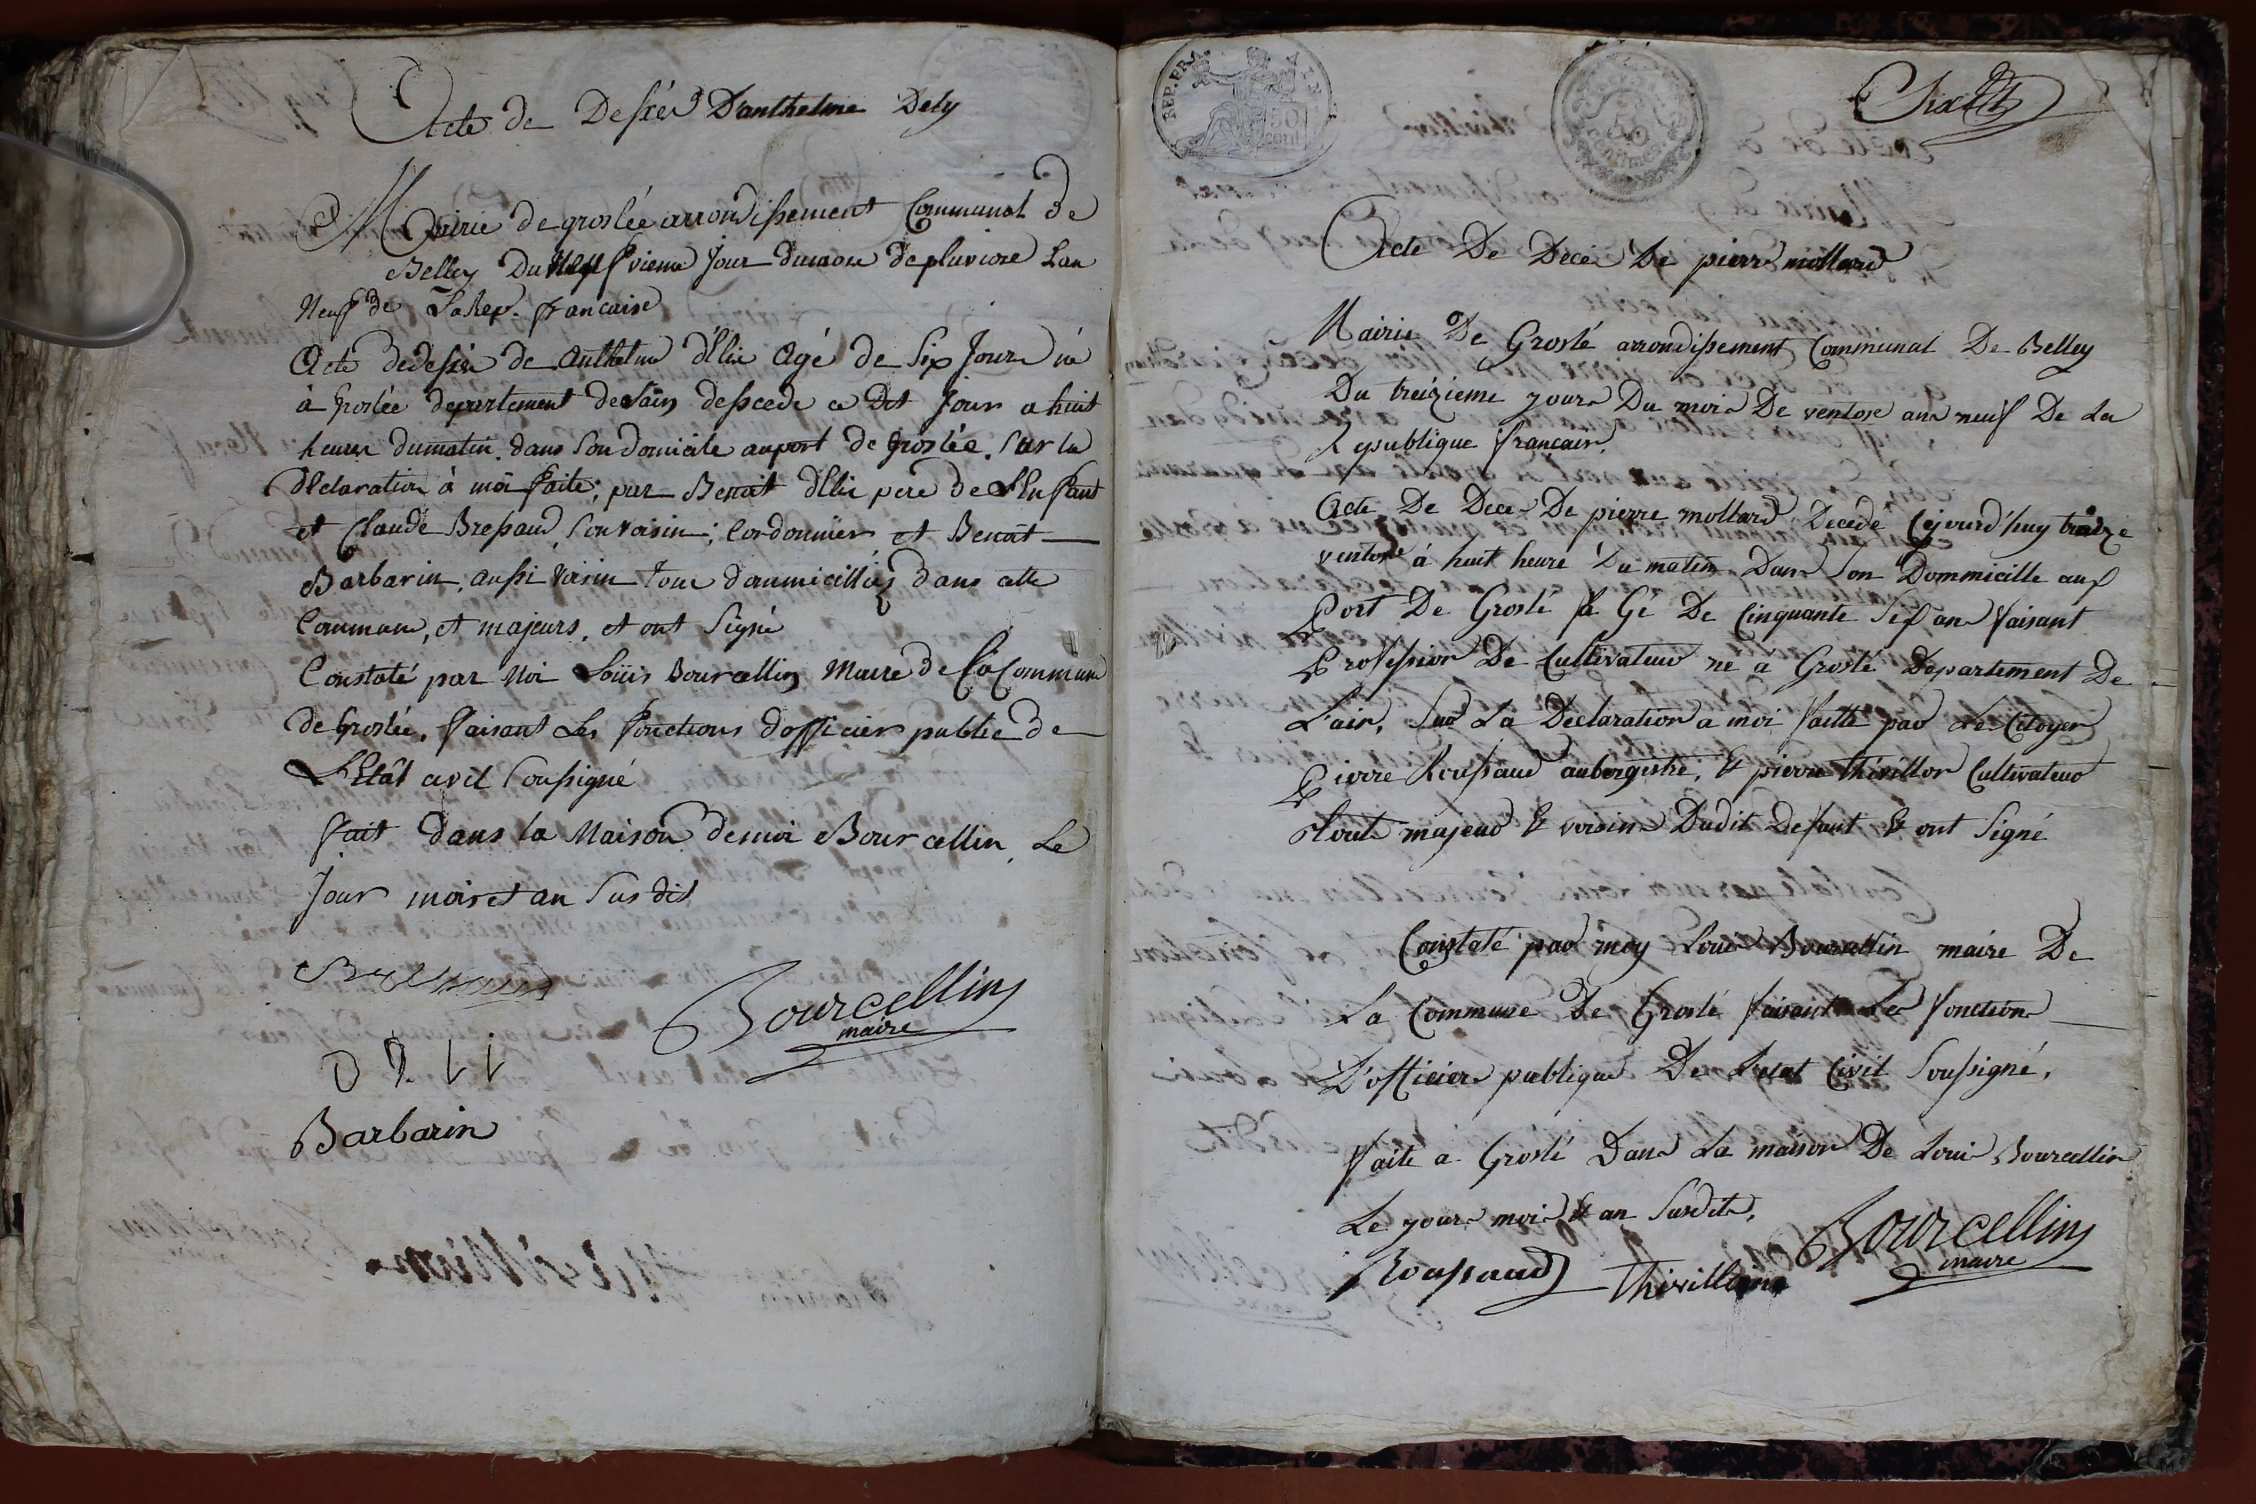 Acte de Desses D'anthelme Dely
Mairie de groslée arrondissement Communal de
Belley Du Neufvieme Jour du mois de pluviose Lan
Neuf de La Rep. francaise
Acte de dessés de Anthelme délie Agé de Six Jours né
à Groslée departement de Lain desscede ce Dit Jour a huit
heures du matin. dans Son domicile au port de Groslée. Sur la
déclaration à moi faite; par Benoit délie pere de LEnfant
et Claude Bressaud, Son voisin; Cordonnier et Benoit
Barbarin, aussi voisin Tous domicilliés dans cette
Commune, et majeurs. et ont Signé
Constaté par Moi Loüis Bourcellin Maire de La Commune
de Groslée. faisant Les fonctions dofficier public de
LEtât civil Soussigné
fait dans la Maison de moi Bourcellin, Le
Jour mois et an Sus dit
Bourcellin
maire
Barbarin
REP. FRA.
50
cent
50
Centimes
Acte De Décé De pierre mollard
Mairie De Groslé arrondissement Communal De Belley
Du treizieme jour Du mois De ventose an neuf De La
Republique française.
Acte De Décé De pierre mollard Décédé Cejourd'huy treize
ventose à huit heure Du matin Dans Son Dommicille au
Port De Groslé a Ge De Cinquante Sis ans faisant
Profession De Cultivateur né a Groslé Departement De
L'ain. Sur La Déclaration a moi faitte par Le Citoyen
Pierre Roussaud aubergiste, & pierre thévillon Cultivateur
tout majeur & voisins Dudit Defunt & ont Signé
Constaté par moy Loui Bourcellin maire De
La Commune De Groslé faisant Les fonction
D'officier publique De Letat Civil Soussigné.
faite a Groslé Dans La maison De Loui Bourcellin
Le jour moi & an Susdit.
Roussaud thivillion Bourcellin
maire